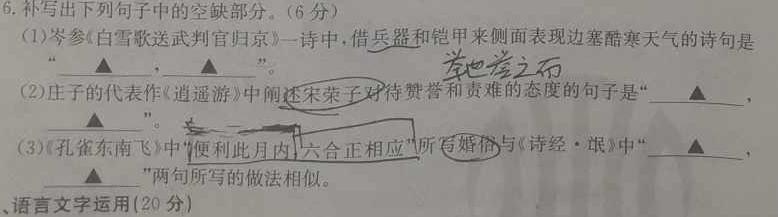 6.补写出下列句子中的空缺部分。(6分)
(1)岑参《白雪歌送武判官归京》一诗中,借兵器和铠甲来侧面表现边塞酷寒天气的诗句是
“▲,▲”。
举世誉之而
(2)庄子的代表作《逍遥游》中阐述宋荣子对待赞誉和责难的态度的句子是“▲,
▲”。
(3)《孔雀东南飞》中“便利此月内,六合正相应”所写婚俗与《诗经·氓》中“▲,
▲”两句所写的做法相似。
、语言文字运用(20分)